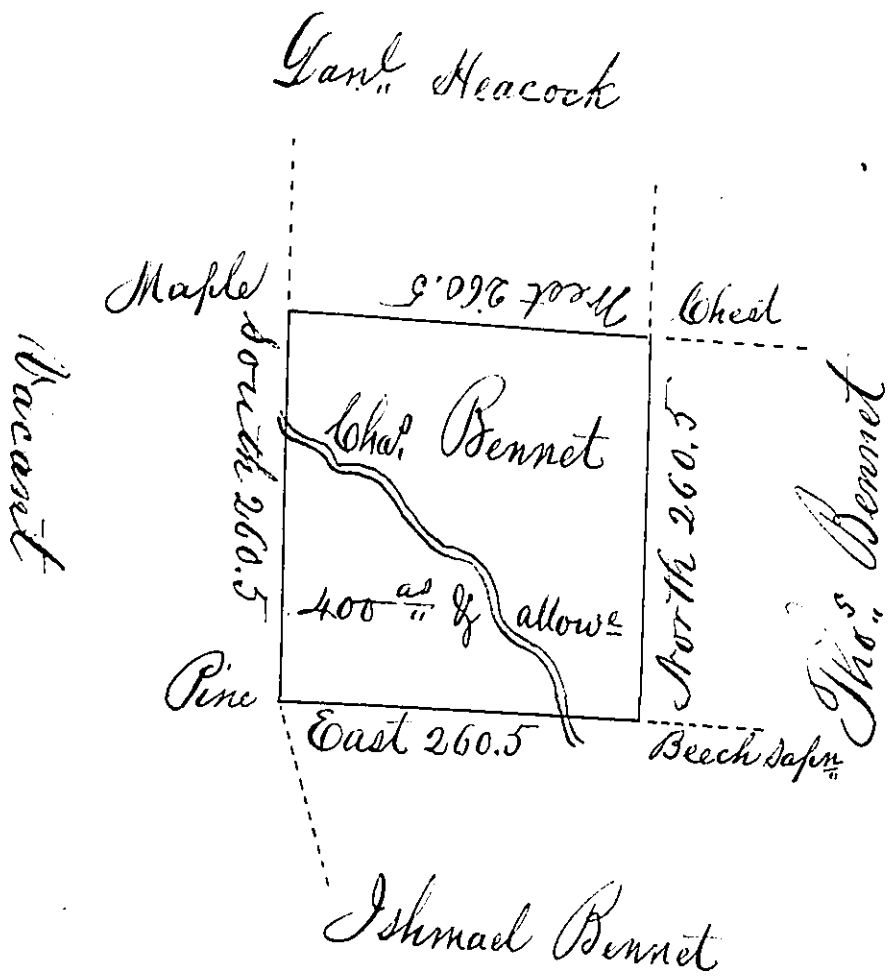 Danl Heacock
Maple
West 260.5
Chest
Vacant
South 260.5
Chas. Bennet
North 260.5
Thos Bennet
400 as & allowe
Pine
East 260.5
Beech Sapn
Ishmael Bennet